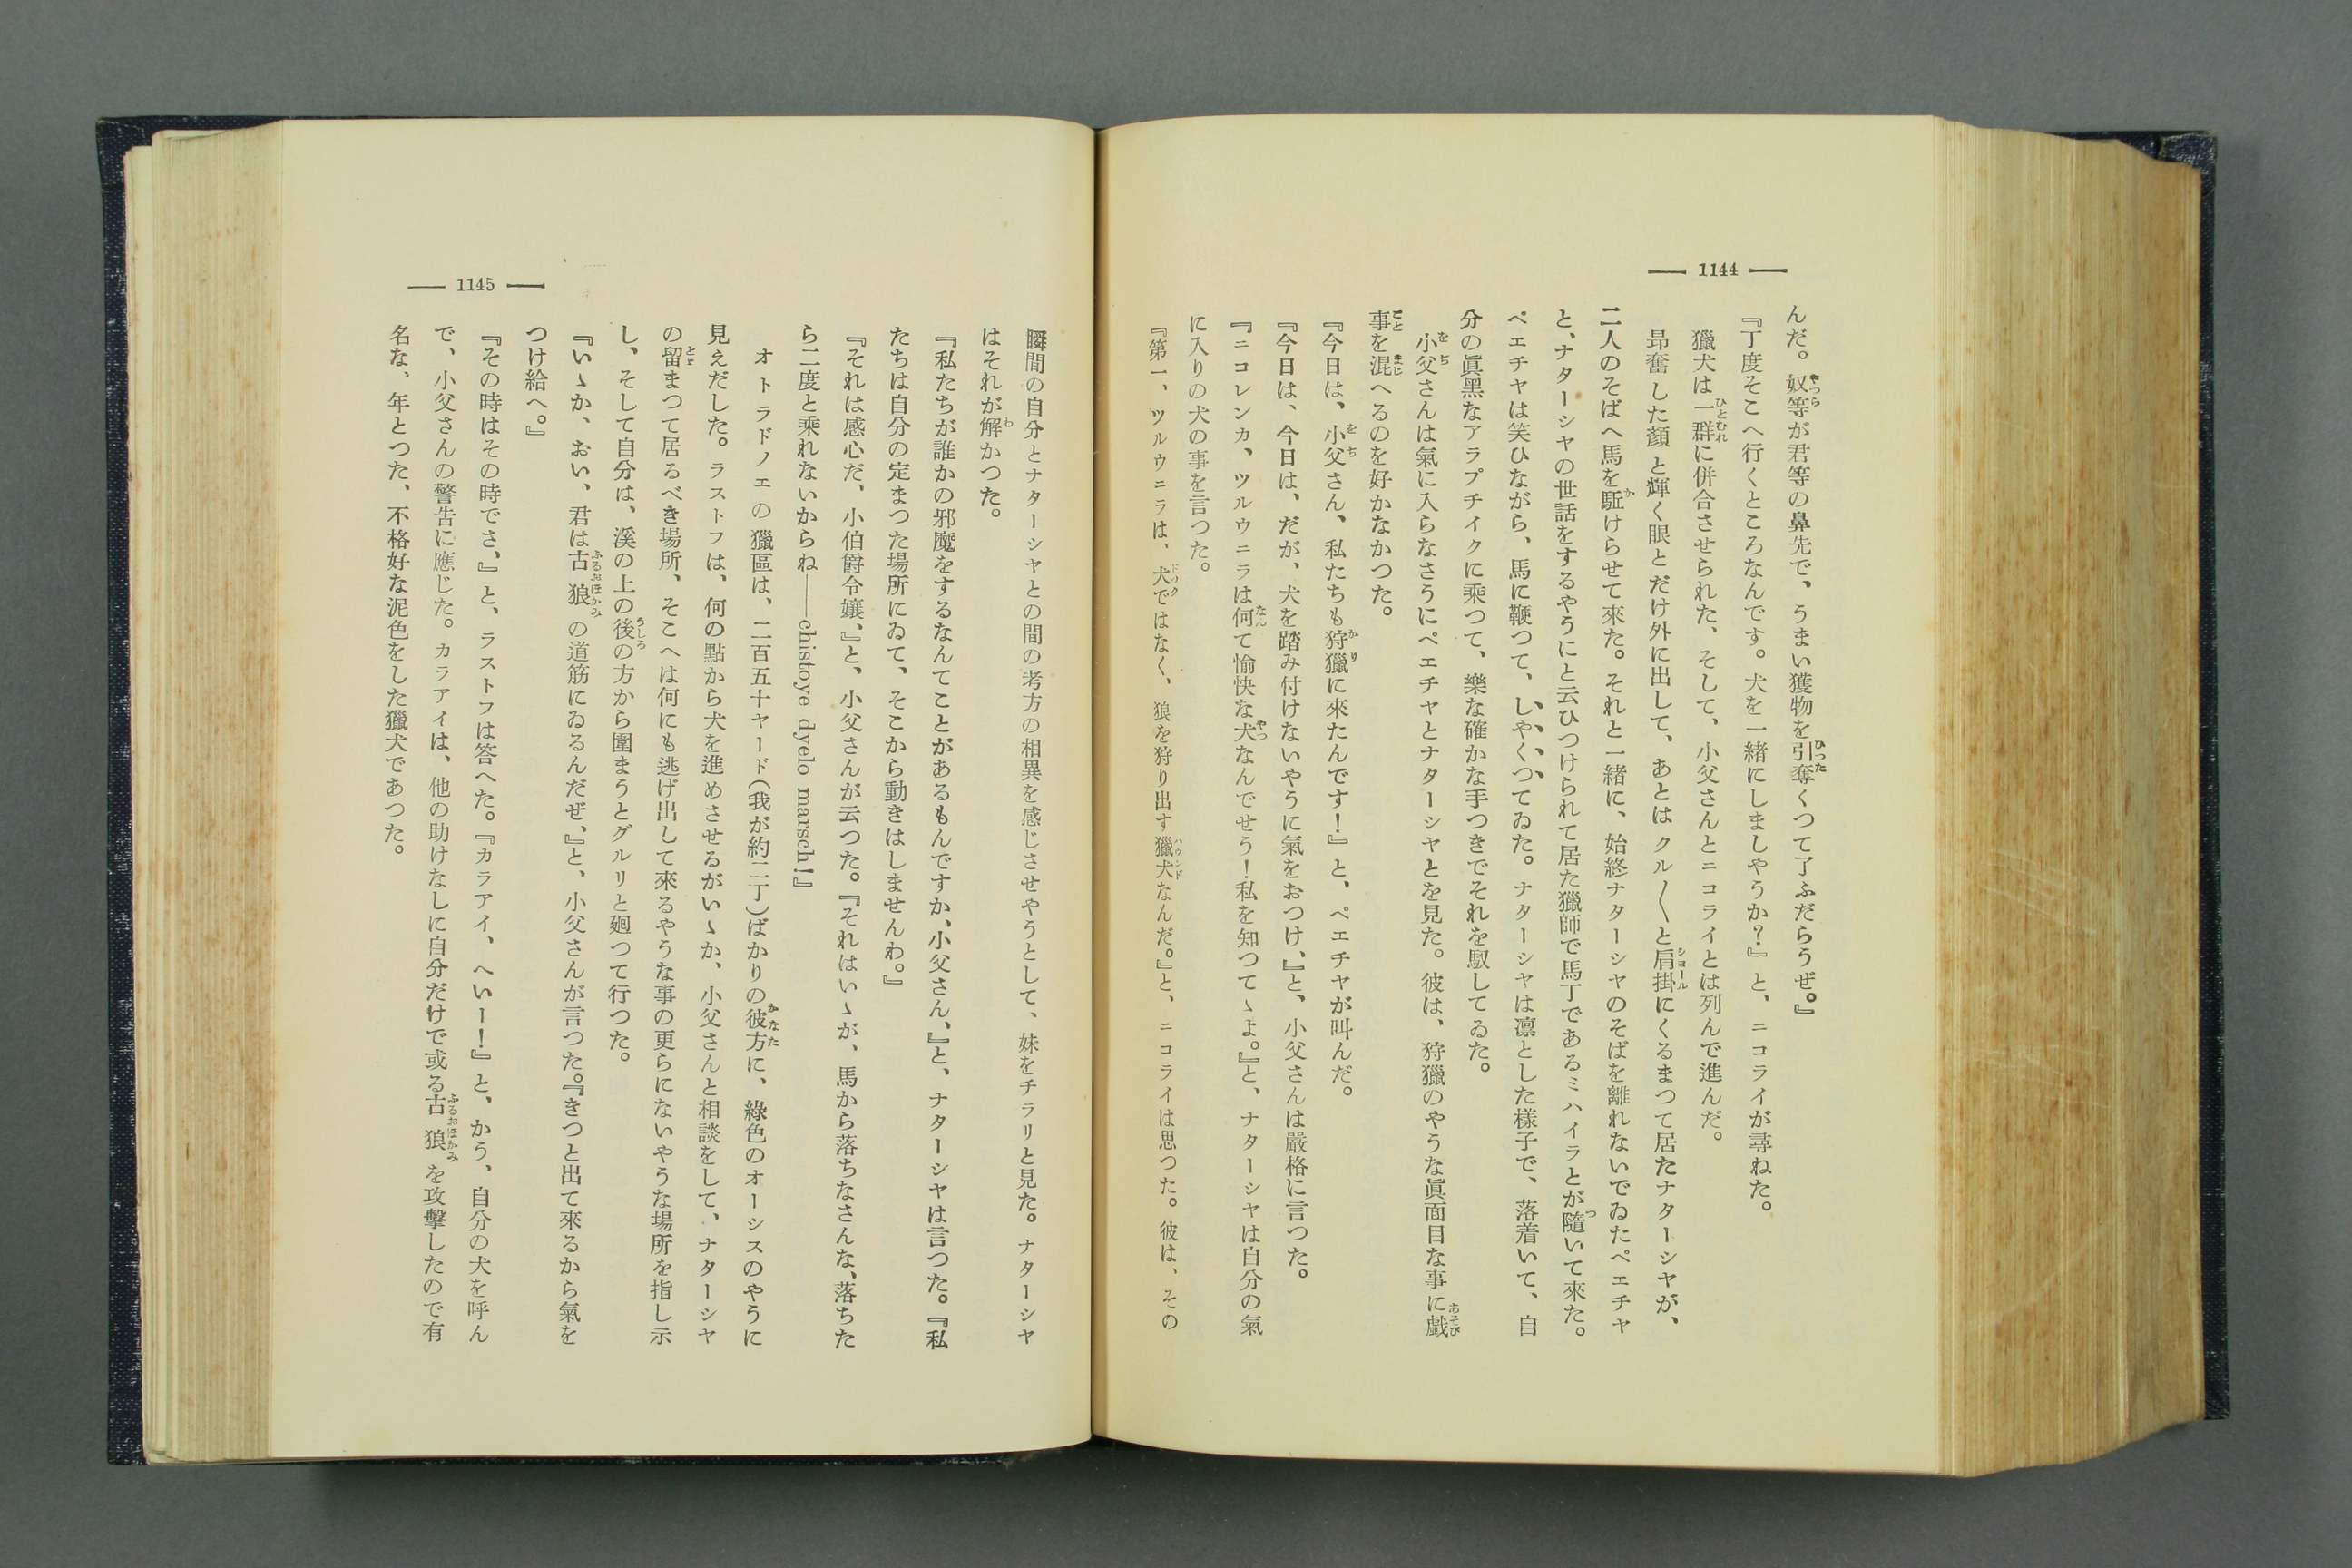 — 1144 —
んだ。奴等が君等の鼻先で、うまい獲物を引奪くつて了ふだらうぜ。』
『丁度そこへ行くところなんです。犬を一緒にしましやうか？』と、ニコライが尋ねた。
獵犬は一群に併合させられた、そして、小父さんとニコライとは列んで進んだ。
昂奮した顏と輝く眼とだけ外に出して、あとはクル〱と肩掛にくるまつて居たナターシヤが、
二人のそばへ馬を駈けらせて來た。それと一緒に、始終ナターシヤのそばを離れないでゐたペエチヤ
と、ナターシヤの世話をするやうにと云ひつけられて居た獵師で馬丁であるミハイラとが隨いて來た。
ペエチヤは笑ひながら、馬に鞭つて、しやくつてゐた。ナターシヤは凛とした樣子で、落着いて、自
分の眞黑なアラプチイクに乘つて、樂な確かな手つきでそれを馭してゐた。
小父さんは氣に入らなさうにペエチヤとナターシヤとを見た。彼は、狩獵のやうな眞面目な事に戲
事を混へるのを好かなかつた。
『今日は、小父さん、私たちも狩獵に來たんです！』と、ペエチヤが叫んだ。
『今日は、今日は、だが、犬を踏み付けないやうに氣をおつけ、』と、小父さんは嚴格に言つた。
『ニコレンカ、ツルウニラは何て愉快な犬なんでせう！私を知つてゝよ。』と、ナターシヤは自分の氣
に入りの犬の事を言つた。
『第一、ツルウニラは、犬ではなく、狼を狩り出す獵犬なんだ。』と、ニコライは思つた。彼は、その
— 1145 —
瞬間の自分とナターシヤとの間の考方の相異を感じさせやうとして、妹をチラリと見た。ナターシヤ
はそれが解かつた。
『私たちが誰かの邪魔をするなんてことがあるもんですか、小父さん、』と、ナターシヤは言つた。『私
たちは自分の定まつた場所にゐて、そこから動きはしませんわ。』
『それは感心だ、小伯爵令孃、』と、小父さんが云つた。『それはいゝが、馬から落ちなさんな、落ちた
ら二度と乘れないからね——chistoye dyelo marsch!』
オトラドノエの獵區は、二百五十ヤード（我が約二丁）ばかりの彼方に、綠色のオーシスのやうに
見えだした。ラストフは、何の點から犬を進めさせるがいゝか、小父さんと相談をして、ナターシヤ
の留まつて居るべき場所、そこへは何にも逃げ出して來るやうな事の更らにないやうな場所を指し示
し、そして自分は、溪の上の後の方から圍まうとグルリと廻つて行つた。
『いゝか、おい、君は古狼の道筋にゐるんだぜ、』と、小父さんが言つた。『きつと出て來るから氣を
つけ給へ。』
『その時はその時でさ、』と、ラストフは答へた。『カラアイ、へいー！』と、かう、自分の犬を呼ん
で、小父さんの警告に應じた。カラアイは、他の助けなしに自分だけで或る古狼を攻擊したので有
名な、年とつた、不格好な泥色をした獵犬であつた。